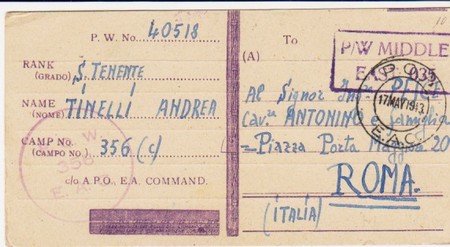 P. W. No. 40518
RANK
(GRADO) S. TENENTE
NAME
(NOME) TINELLI ANDREA
CAMP No.
(CAMPO NO.) 356 (c)
c/o A.P.O., E.A. COMMAND.
358
To
(A)
P/W MIDDLE
17 MAY 1943
Al Signor Ing.
Cav. ANTONINO e famiglia
Piazza Porta 20
ROMA.
(ITALIA)